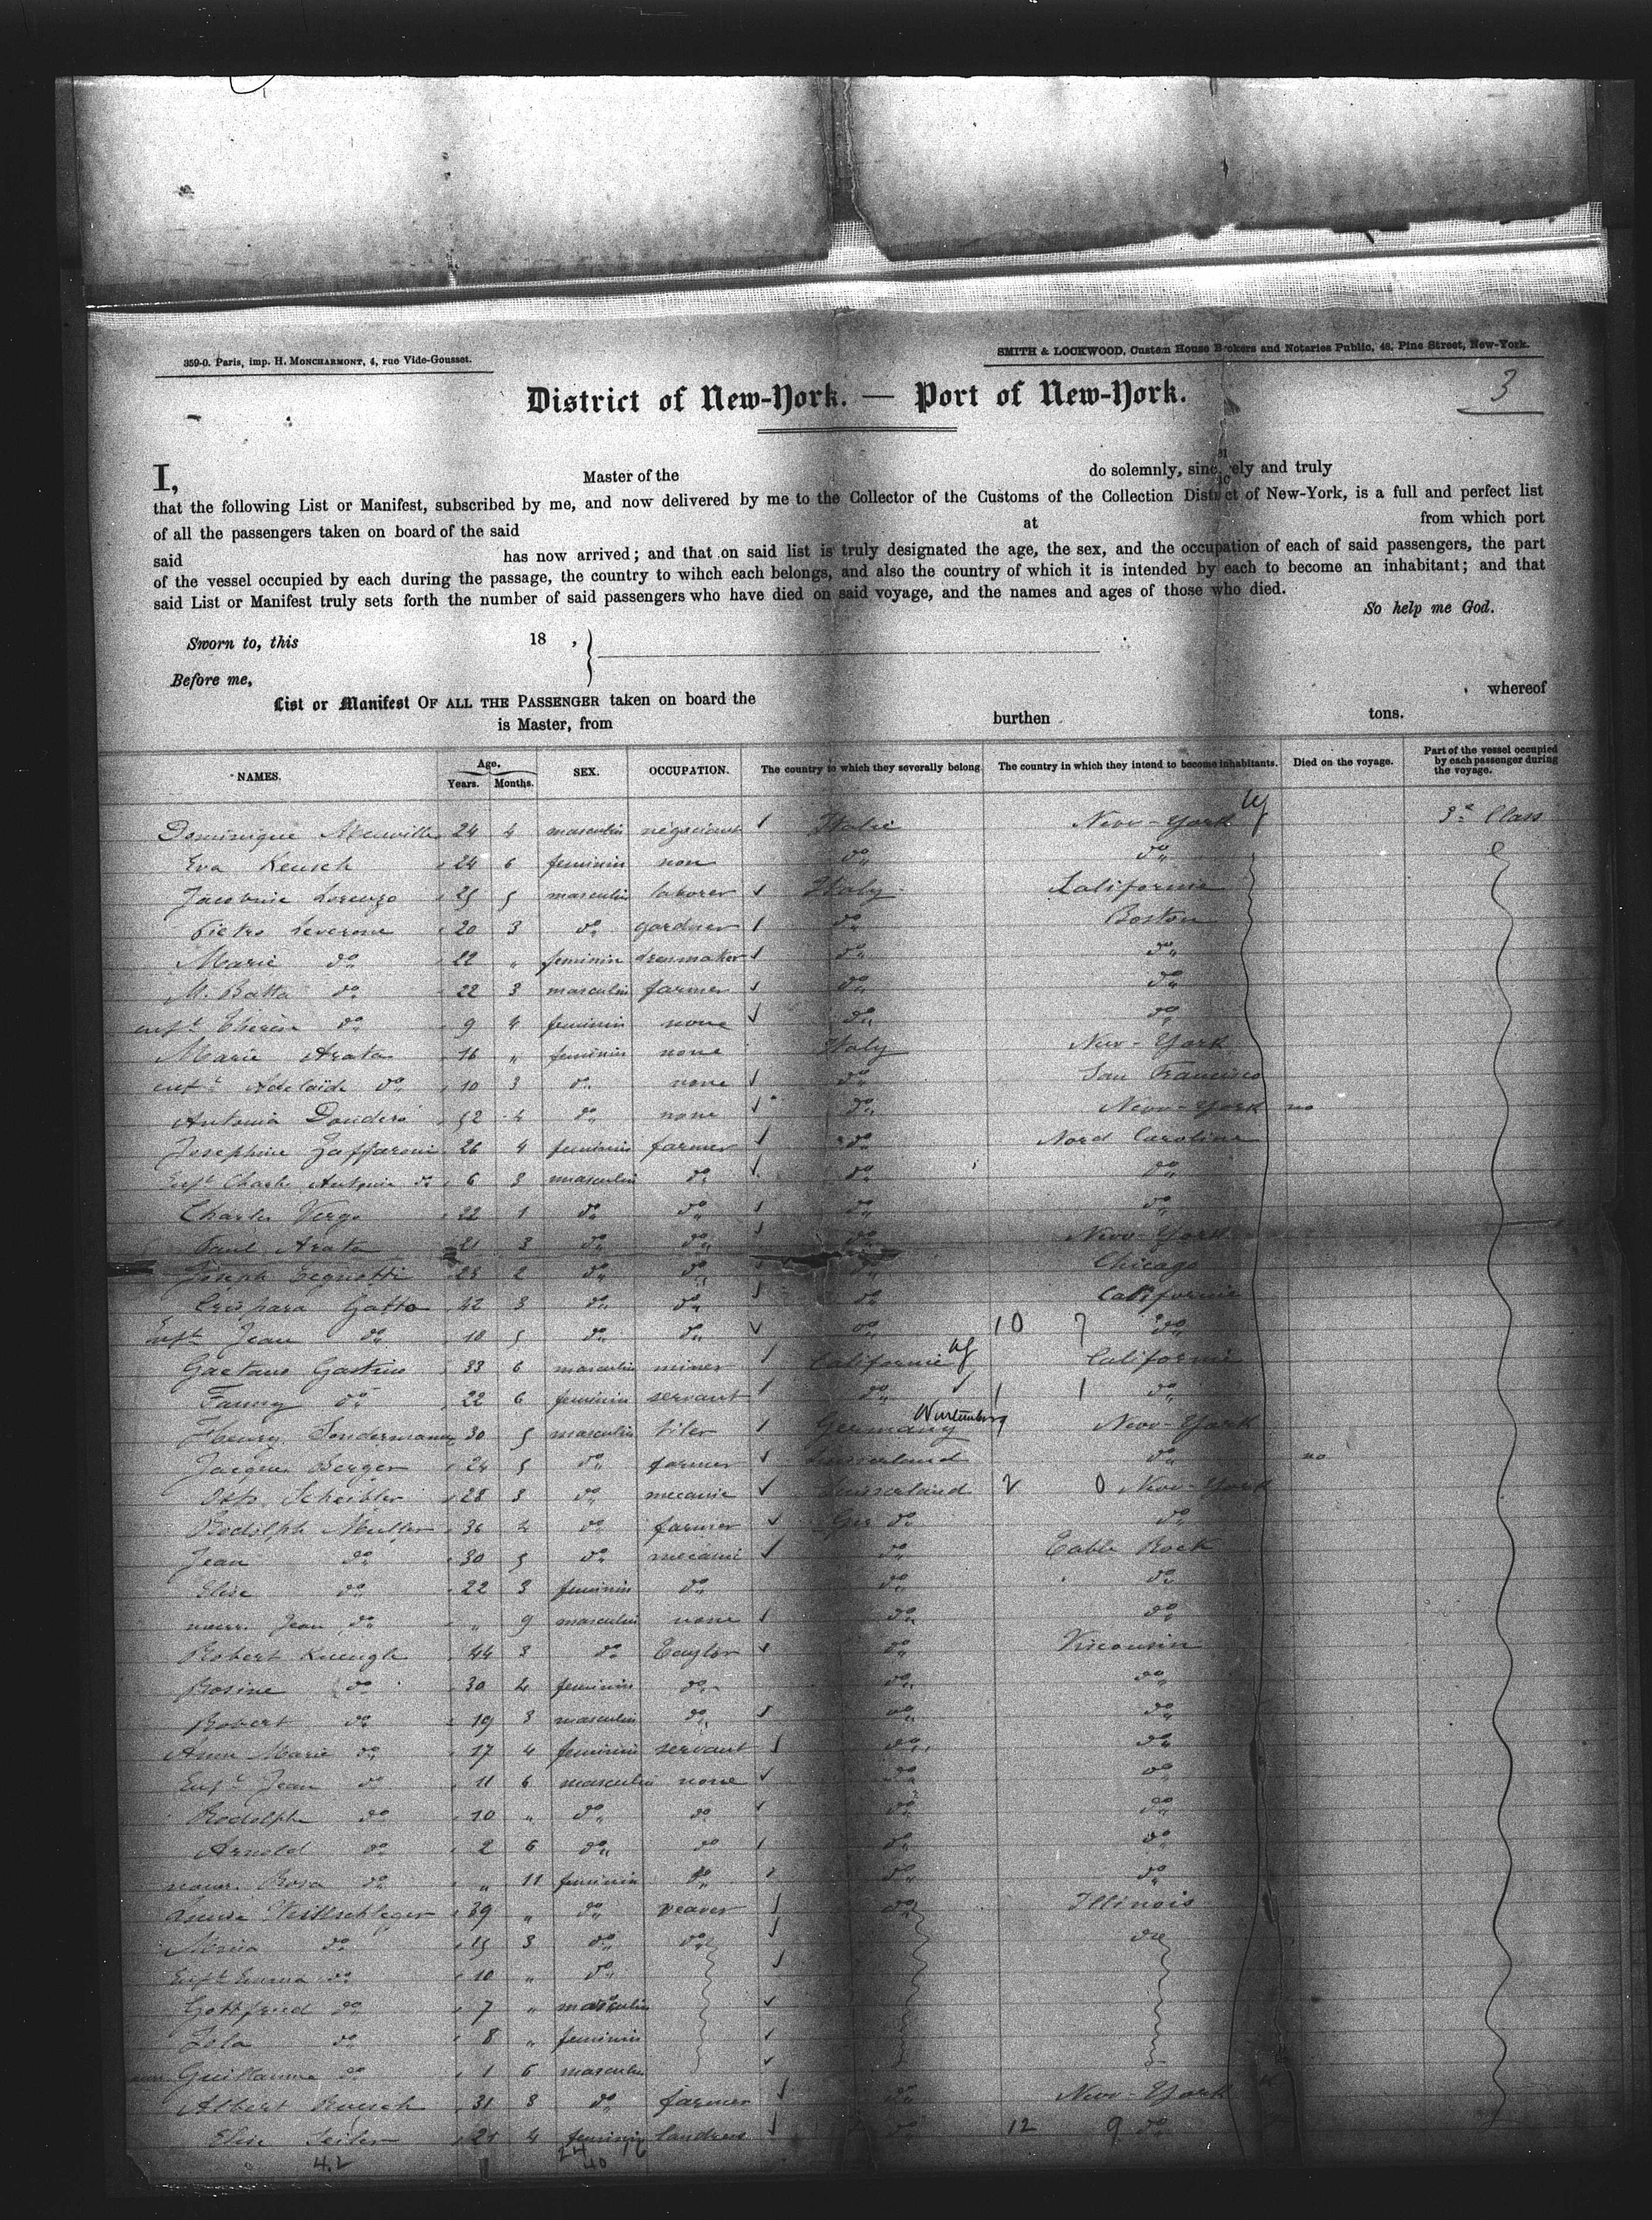 359-0. Paris, imp. H. MONCHARMONT, 4, rue Vide-Gousset.
SMITH & LOCKWOOD, Custom House Brokers and Notaries Public, 48, Pine Street, New-York.
3
District of New-York. — Port of New-York.
I, Master of the do solemnly, sincerely and truly
that the following List or Manifest, subscribed by me, and now delivered by me to the Collector of the Customs of the Collection District of New-York, is a full and perfect list
of all the passengers taken on board of the said at from which port
said has now arrived; and that on said list is truly designated the age, the sex, and the occupation of each of said passengers, the part
of the vessel occupied by each during the passage, the country to wihch each belongs, and also the country of which it is intended by each to become an inhabitant; and that
said List or Manifest truly sets forth the number of said passengers who have died on said voyage, and the names and ages of those who died.
So help me God.
Sworn to, this 18 ,
Before me,
List or Manifest OF ALL THE PASSENGER taken on board the whereof
is Master, from burthen tons.
NAMES. Age. Years. Months. SEX. OCCUPATION. The country to which they severally belong. The country in which they intend to become inhabitants. Died on the voyage. Part of the vessel occupied by each passenger during the voyage.
Dominique 24 4 masculin négociant Italie New-York 3e Class
Eva Keusch 24 6 feminin non do do
Lorenzo 25 5 masculin laborer Italy Californie
Pietro Leverone 20 3 do gardner do Boston
Marie do 22 " feminin dressmaker do do
M. Batta do 22 3 masculin farmer do do
enft do 9 4 feminin none do do
Marie Arata 16 " feminin none Italy New-York
enft Adelaïde do 10 3 do none do San Francisco
Antonia Dondero 52 4 do none do New-York no
Josephine Zaffaroni 26 4 feminin farmer do Nord Caroline
Enft Charles Antonio do 6 3 masculin do do do
Charles Verga 22 1 do do do do
Paul Arata 21 3 do do do New-York
Joseph 25 2 do do do Chicago
Gatto 42 3 do do do Californie
Enft Jean do 10 5 do do do 10 7 do
Gaetano 33 6 masculin miner Californie Californie
Fanny do 22 6 feminin servant do 1 1 do
Sondermann 30 5 masculin tiler Germany Wurtemberg New-York
Jacques Berger 24 5 do farmer do no
Otto Scheibler 28 3 do mecanic 2 0 New-York
Rodolph Muller 36 4 do farmer do do
Jean do 30 5 do mecanic do Table Rock
Elise do 22 3 feminin do do do
nour. Jean do " 9 masculin none do do
Robert 44 3 do Taylor do Visconsin
Rosine do 30 4 feminin do do do
Robert do 19 3 masculin do do do
Anna Marie do 17 4 feminin servant do do
Enft Jean do 11 6 masculin none do do
Rodolphe do 10 " do do do do
Arnold do 2 6 do do do do
nour. Rosa do " 11 feminin do do do
39 " do veaver do Illinois
Maria do 15 3 do do do
Enft Emma do 10 " do
Gottfried do 7 " masculin
do 8 " feminin
Guillaume do 1 6 masculin
Albert 31 3 do farmer do New-York
Elise Seiler 21 4 feminin landress do 12 9 do
42 24 16
40